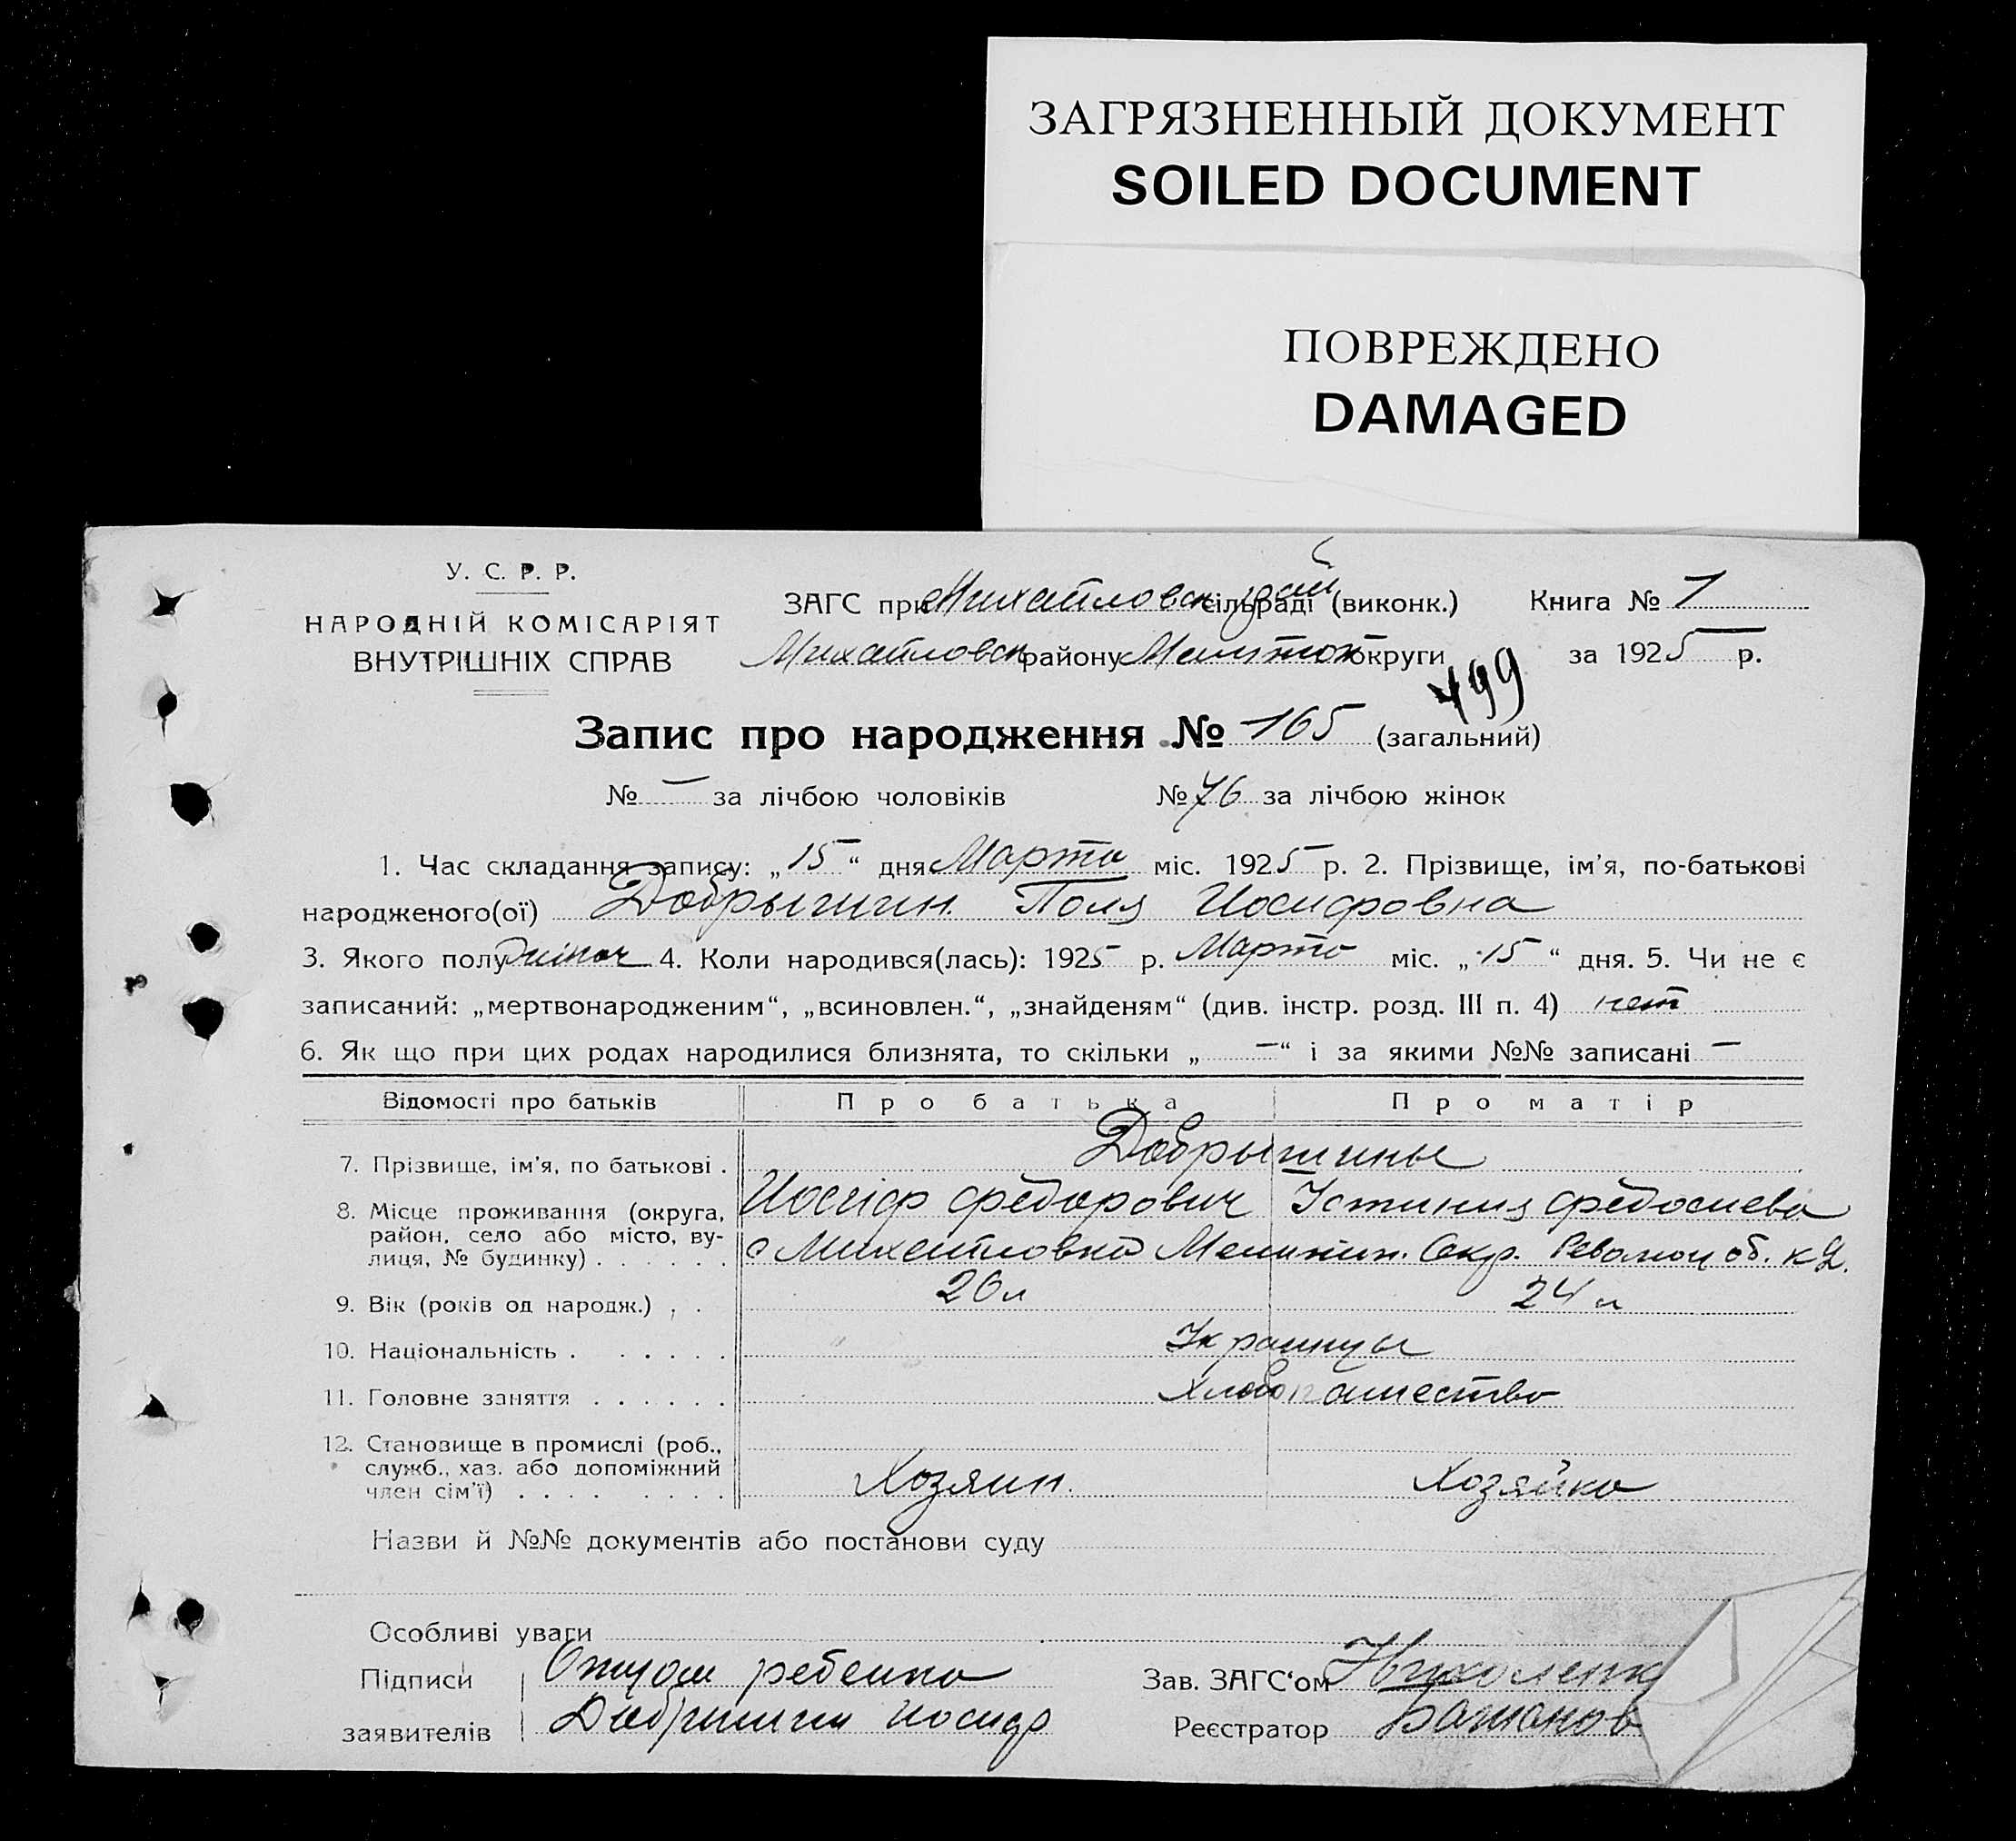 ЗАГРЯЗНЕННЫЙ ДОКУМЕНТ
SOILED DOCUMENT
ПОВРЕЖДЕНО
DAMAGED
У. С. Р. Р.
НАРОДНІЙ КОМІСАРІЯТ
ВНУТРІШНІХ СПРАВ
ЗАГС при Михайловск сільраді (виконк.) Книга № 1
Михайловск району Мелитоп округи за 1925 р.
499
Запис про народження № 165 (загальний)
№ — за лічбою чоловіків № 76 за лічбою жінок
1. Час складання запису: „15“ дня Марта міс. 1925 р. 2. Прізвище, ім'я, по-батькові
народженого(ої) Добрыгин. Поля Иосифовна
3. Якого полу жіноч 4. Коли народився(лась): 1925 р. Марта міс. „15“ дня. 5. Чи не є
записаний: „мертвонародженим“, „всиновлен.“, „знайденям“ (див. інстр. розд. III п. 4) нет
6. Як що при цих родах народилися близнята, то скільки „—“ і за якими №№ записані —
Відомості про батьків Про батька Про матір
7. Прізвище, ім'я, по батькові . Добрыгины
Иосиф Федорович Устиния Федосиева
8. Місце проживання (округа,
район, село або місто, ву-
лиця, № будинку) . . . . . . с Михайловка Мелитоп. Окр.
9. Вік (років од народж.) . . 26 л 24 л
10. Національність . . . . . . Украинцы
11. Головне заняття . . . . . . Хлебопашество
12. Становище в промислі (роб.,
служб., хаз. або допоміжний
член сім'ї) . . . . . . . . Хозяин. Хозяйка
Назви й №№ документів або постанови суду
Особливі уваги
Підписи Отцом ребенка Зав. ЗАГС‘ом Николенк
заявителів Добрыгин Иосиф Реєстратор Башанов